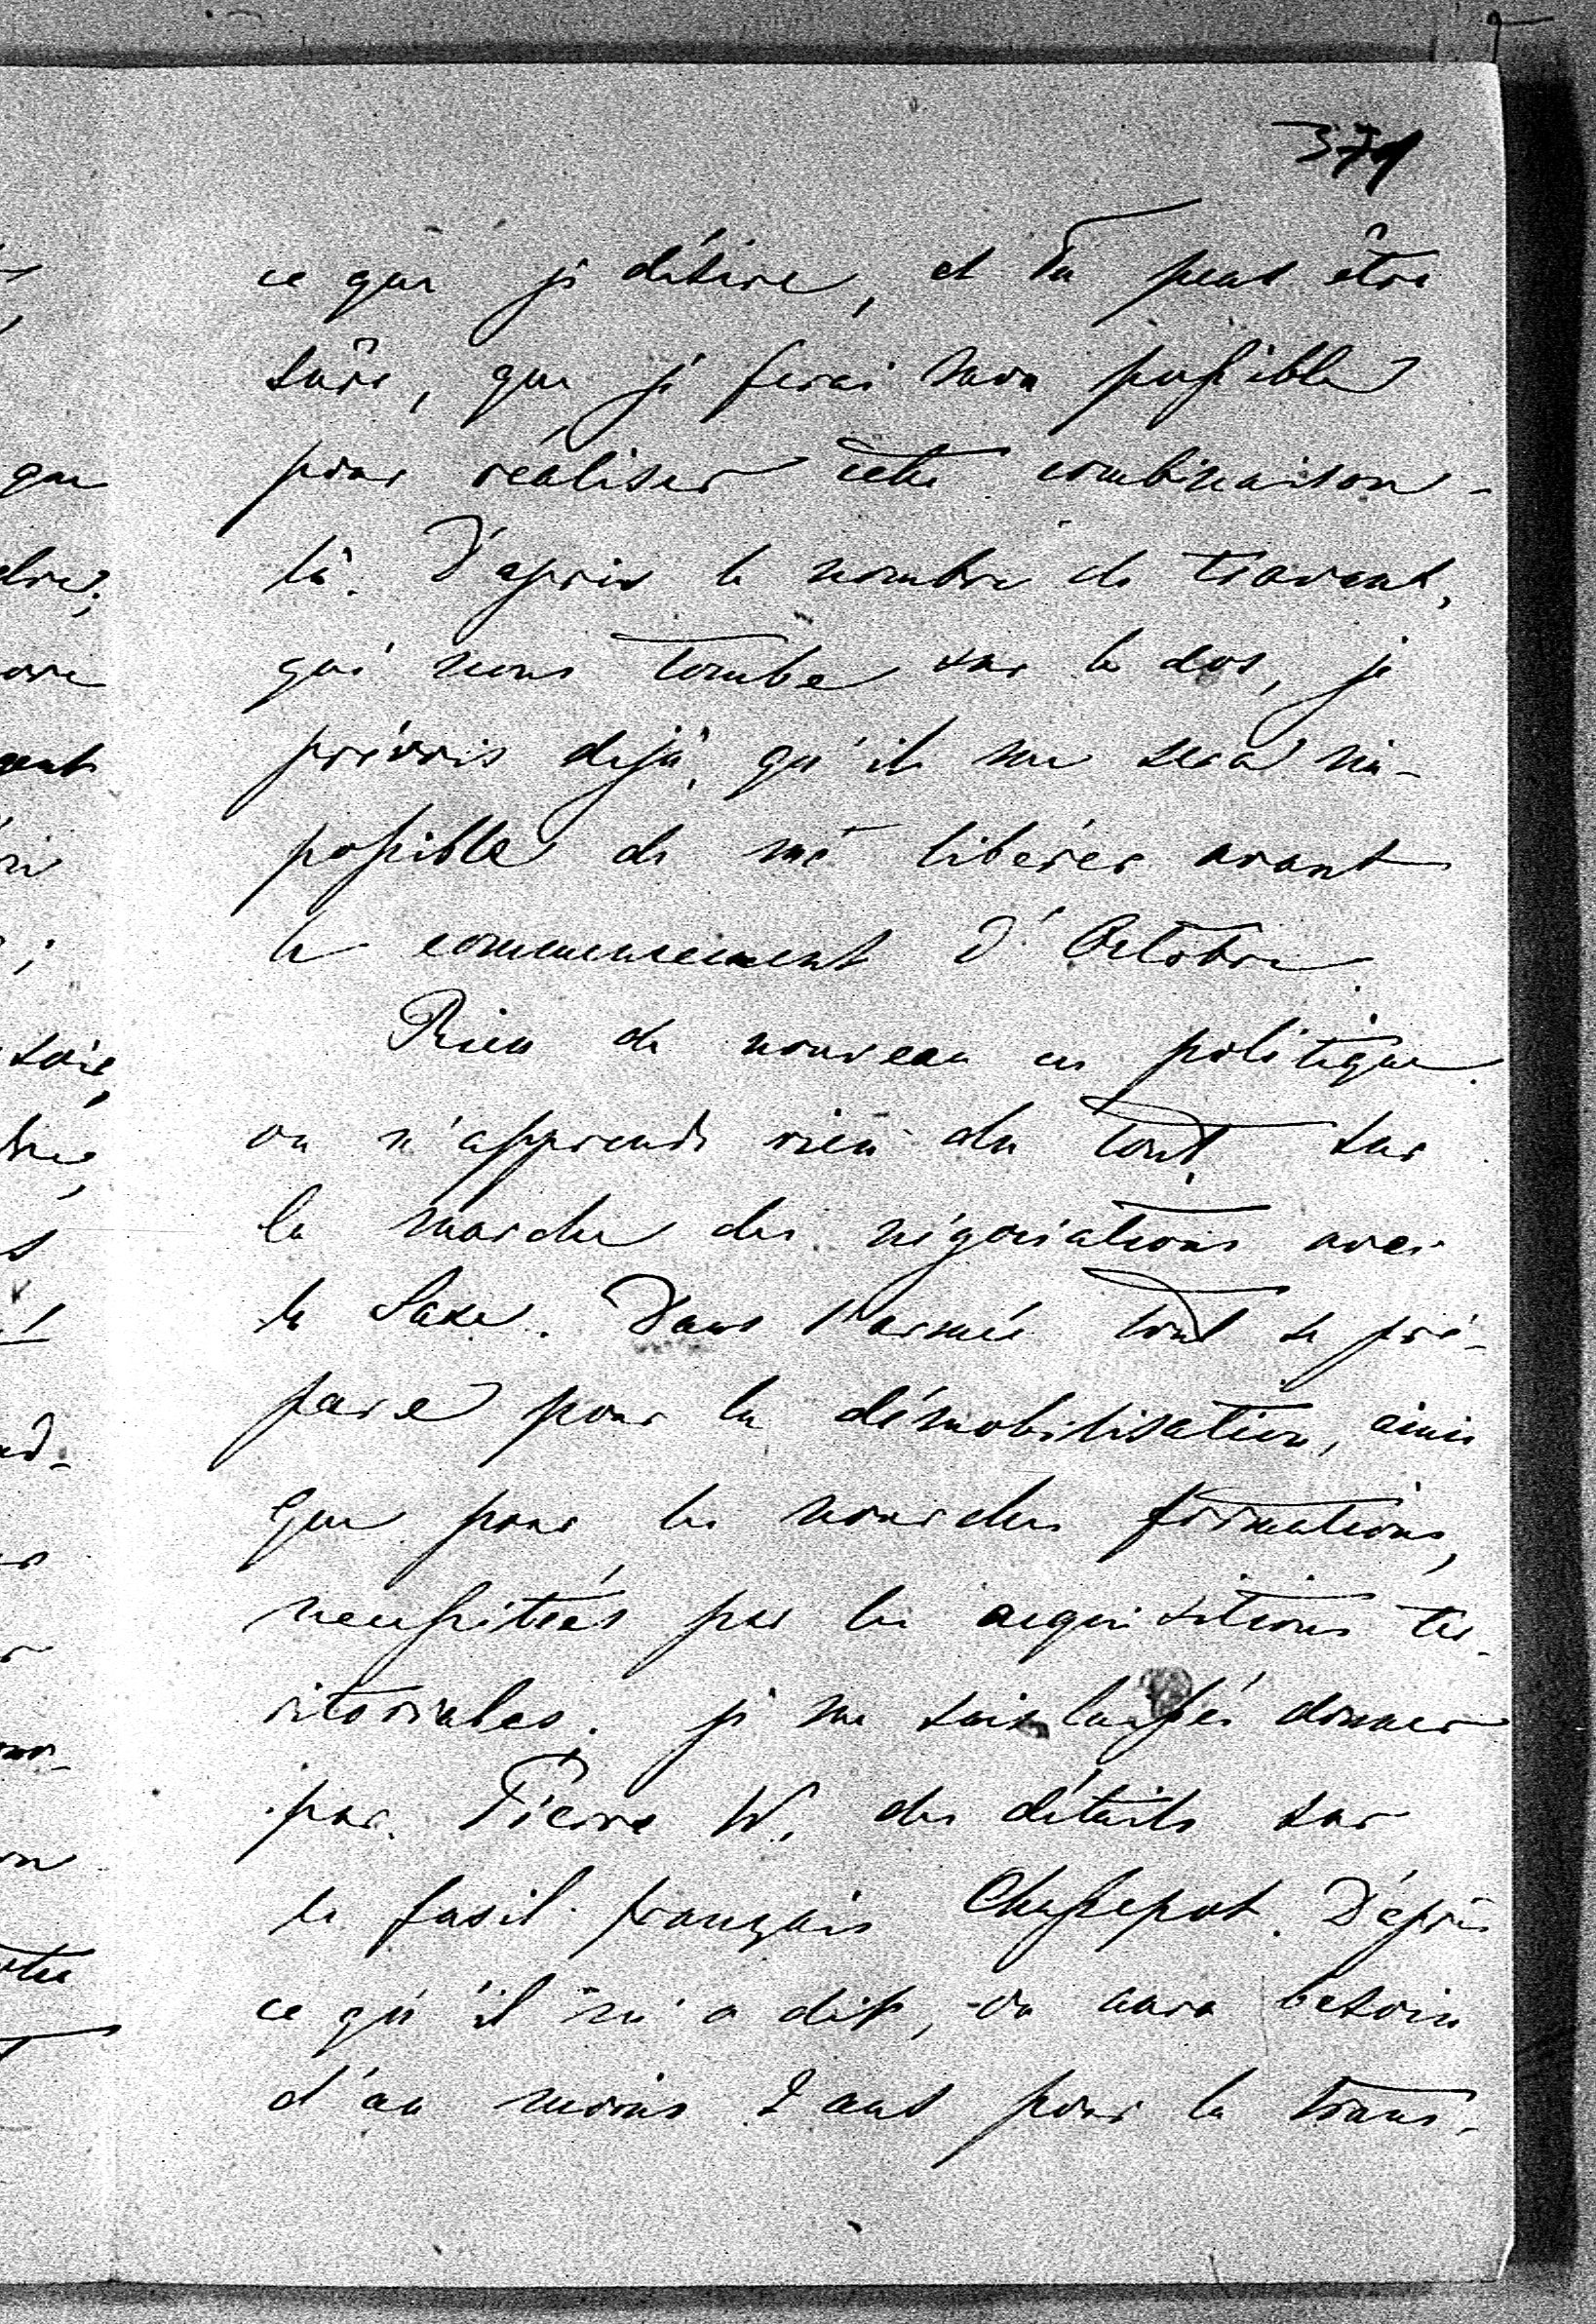 371
ce que je désire, et tu peut être
sûre, que je ferai mon possible
pour réaliser cette combinaison-
là. D'après le nombre de travaut,
qui nous tombe sur le dos, je
prévois dejà, qu'il me sera im-
possible de me libérer avant
le commencement d'Octobre.
Rien de nouveau en politique.
on n'apprends rien du tout sur
la marche des négociations avec
la Saxe. Dans l'armée tout se pré-
pare pour la démobilisation, ainsi
que pour les nouvelles formations,
necessitées par les acquisitions ter-
ritoriales. je me suis laissé donner
par Pierre W. des détails sur
le fusil français Chassepot. D'après
ce qu'il m'a dit, on aura besoin
d'au moins 2 ans pour la trans-